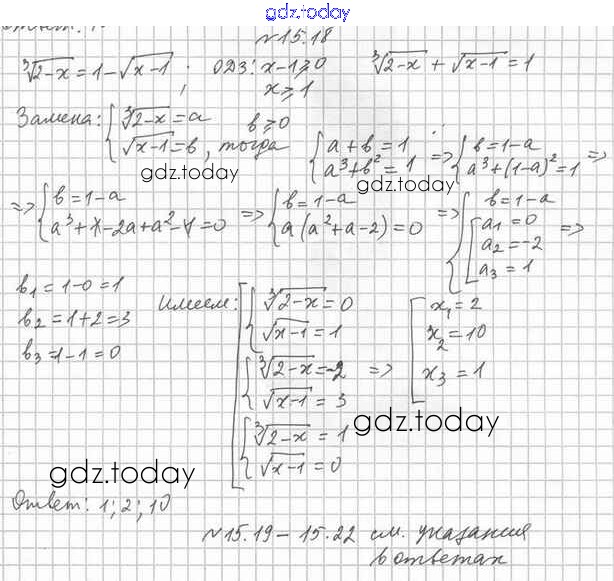 gdz.today
№15.18
∛(2-x) = 1-√(x-1) ; ОДЗ: x-1⩾0 ∛(2-x) + √(x-1) = 1
x⩾1
Замена: { ∛(2-x) = a b⩾0
√(x-1) = b, тогда { a+b=1 => { b=1-a
a³+b²=1 a³+(1-a)²=1 =>
gdz.today gdz.today
=> { b=1-a => { b=1-a => { b=1-a
a³+1-2a+a²-1=0 a(a²+a-2)=0 [ a₁=0
a₂=-2 =>
a₃=1
b₁=1-0=1
b₂=1+2=3
b₃=1-1=0
Имеем: [ { ∛(2-x) = 0
√(x-1) = 1
{ ∛(2-x) = -2 =>
√(x-1) = 3
{ ∛(2-x) = 1
√(x-1) = 0
[ x₁=2
x₂=10
x₃=1
gdz.today
gdz.today
Ответ: 1; 2; 10
№15.19 – 15.22 см. указания
в ответах